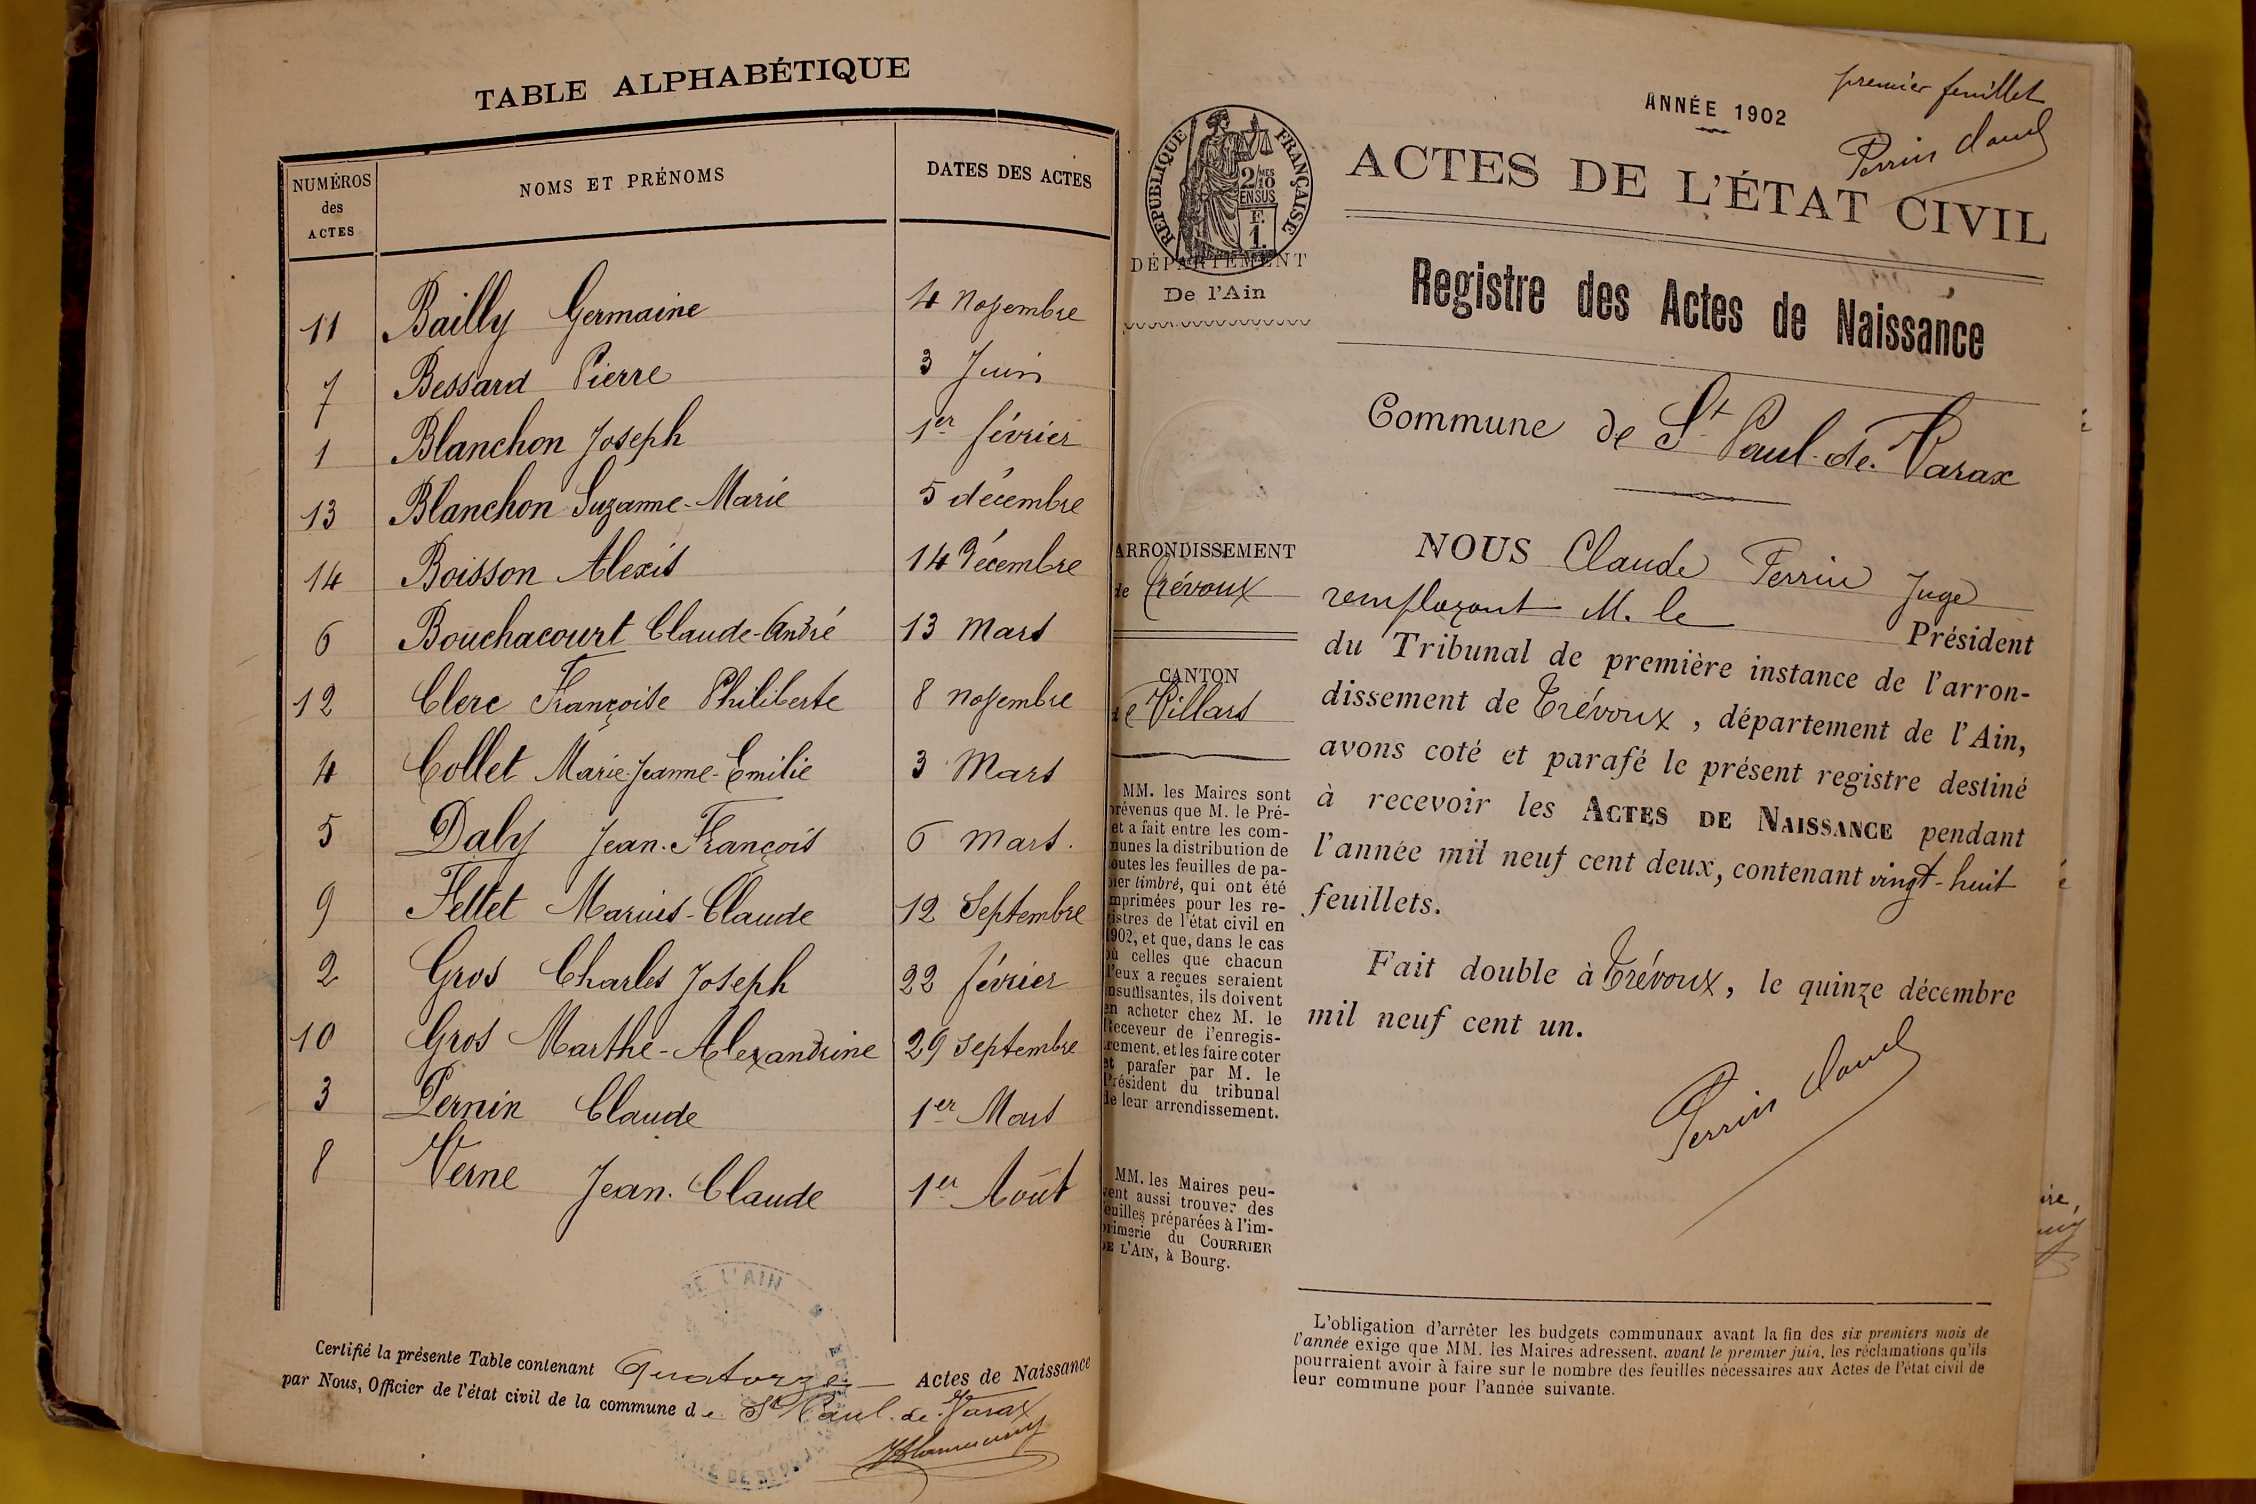 TABLE ALPHABÉTIQUE
NUMÉROS des ACTES
NOMS ET PRÉNOMS
DATES DES ACTES
11 Bailly Germaine 4 novembre
7 Bessard Pierre 3 Juin
1 Blanchon Joseph 1er février
13 Blanchon Suzanne-Marie 5 décembre
14 Boisson Alexis 14 Décembre
6 Bouchacourt Claude-André 13 Mars
12 Clerc Françoise Philiberte 8 novembre
4 Collet Marie-Jeanne-Emilie 3 Mars
5 Daby Jean-François 6 Mars.
9 Fellet Marius-Claude 12 Septembre
2 Gros Charles Joseph 22 février
10 Gros Marthe-Alexandrine 29 septembre
3 Pernin Claude 1er Mars
8 Verne Jean-Claude 1er Août
DE L'AIN
Certifié la présente Table contenant Quatorze Actes de Naissance
par Nous, Officier de l'état civil de la commune de St Paul-de-Varax
RÉPUBLIQUE FRANÇAISE
2/10 MES
EN SUS
F.
1.
DÉPARTEMENT
De l'Ain
ARRONDISSEMENT
de Trévoux
CANTON
de Villars
MM. les Maires sont
prévenus que M. le Pré-
et a fait entre les com-
munes la distribution de
toutes les feuilles de pa-
pier timbré, qui ont été
imprimées pour les re-
gistres de l'état civil en
1902, et que, dans le cas
où celles que chacun
d'eux a reçues seraient
insuffisantes, ils doivent
en acheter chez M. le
Receveur de l'enregis-
trement, et les faire coter
et parafer par M. le
Président du tribunal
de leur arrondissement.
MM. les Maires peu-
vent aussi trouver des
feuilles préparées à l'im-
primerie du COURRIER
DE L'AIN, à Bourg.
premier feuillet
Perrin Claude
ANNÉE 1902
ACTES DE L'ÉTAT CIVIL
Registre des Actes de Naissance
Commune de St Paul-de-Varax
NOUS Claude Perrin Juge
remplaçant M. le Président
du Tribunal de première instance de l'arron-
dissement de Trévoux, département de l'Ain,
avons coté et parafé le présent registre destiné
à recevoir les ACTES DE NAISSANCE pendant
l'année mil neuf cent deux, contenant vingt-huit
feuillets.
Fait double à Trévoux, le quinze décembre
mil neuf cent un.
Perrin Claude
L'obligation d'arrêter les budgets communaux avant la fin des six premiers mois de
l'année exige que MM. les Maires adressent, avant le premier juin, les réclamations qu'ils
pourraient avoir à faire sur le nombre des feuilles nécessaires aux Actes de l'état civil de
leur commune pour l'année suivante.